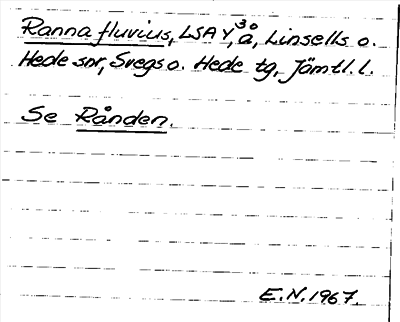 Ranna fluvius, LSA Y 30, å, Linsells o.
Hede snr, Svegs o. Hede tg, Jämtl. l.
Se Rånden.
E.N. 1967.